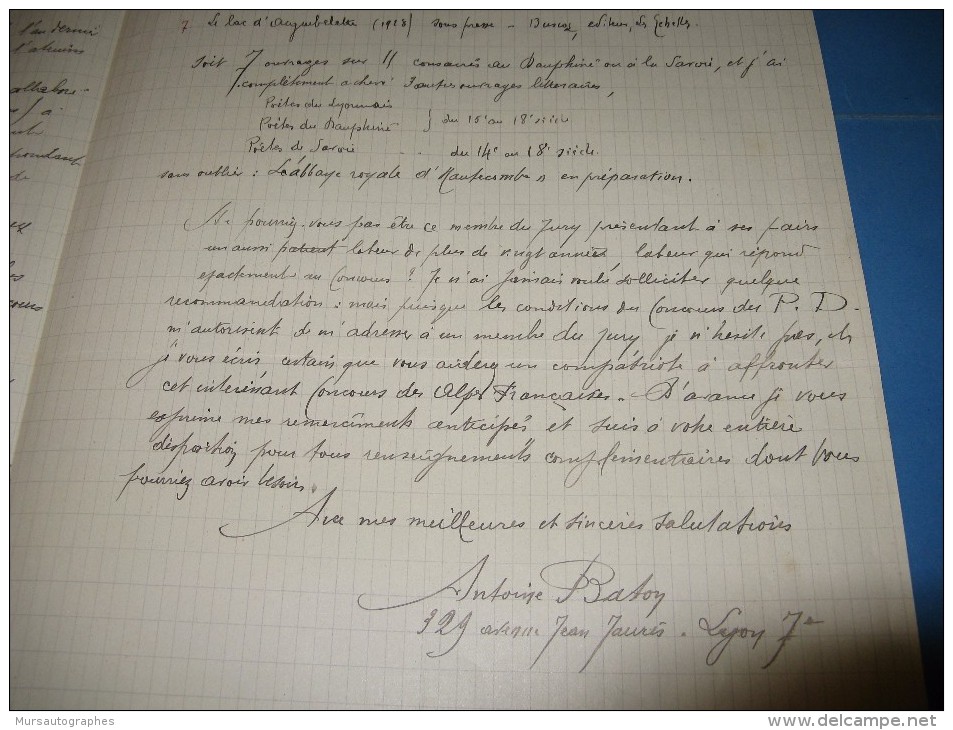 l'an dernier
7 Le lac d'Aiguebelette (1928) sous presse - éditeur, Les Echelles
Soit 7 ouvrages sur 11 consacrés au Dauphiné ou à la Savoie, et j'ai
complètement achevé 3 autres ouvrages littéraires,
Poètes du Lyonnais
Poètes du Dauphiné } du 15e au 18e siècle
Poètes de Savoie . . du 14e au 18e siècle.
sans oublier : L'abbaye royale d'Hautecombe en préparation.
Ne pourriez-vous pas être ce membre du Jury présentant à ses pairs
un aussi patient labeur de plus de vingt années, labeur qui répond
exactement au Concours ? Je n'ai jamais voulu solliciter quelque
recommandation : mais puisque les conditions du Concours du P. D.
m'autorisent de m'adresser à un membre du Jury je n'hésite pas, et
je vous écris certain que vous aiderez un compatriote à affronter
cet intéressant Concours des Alpes Françaises. D'avance je vous
exprime mes remerciments anticipés et suis à votre entière
disposition pour tous renseignements complémentaires dont vous
pourriez avoir besoin.
Avec mes meilleures et sincères salutations
Antoine Baton
329 avenue Jean Jaurès. Lyon 7e
Mursautographes
delcampe.net